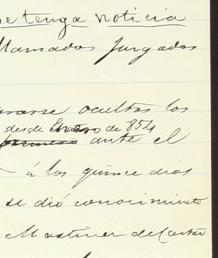 se tenga noticia
llamados Juzgados
ocultas los
desde Enero de 854
ante el
á los quince dias
se dió conocimiento
Martinez de Castro